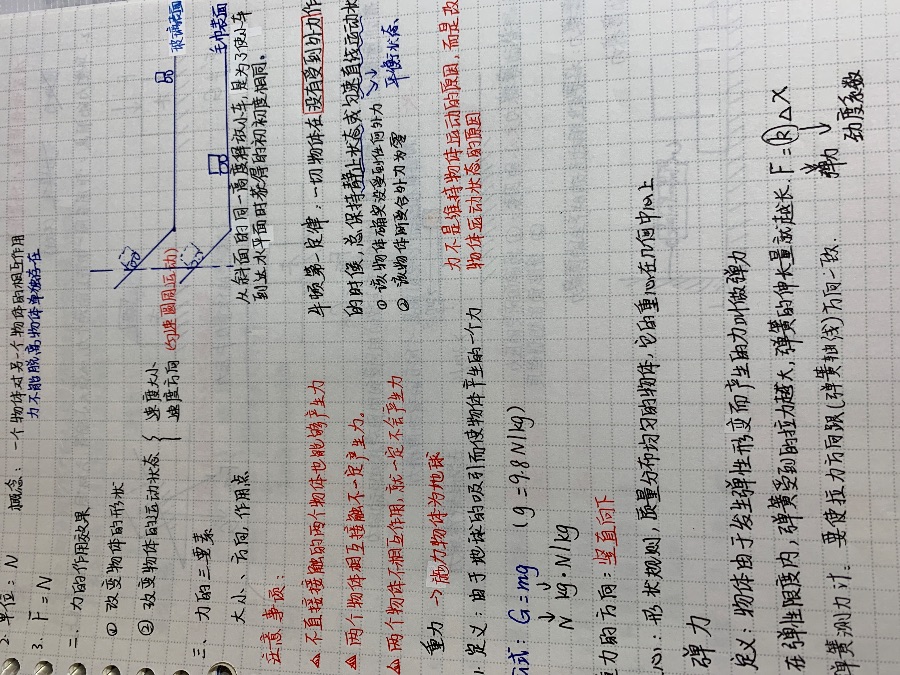 概念：一个物体对另一个物体的相互作用
力不能脱离物体单独存在
2. 单位：N
3. F = N
二、力的作用效果
① 改变物体的形状
② 改变物体的运动状态 { 速度大小
速度方向 (匀速圆周运动)
三、力的三要素
大小、方向，作用点
注意事项：
▲ 不直接接触的两个物体也能够产生力
▲ 两个物体相互接触不一定产生力。
▲ 两个物体不相互作用，就一定不会产生力
重力 → 施力物体为地球
1. 定义：由于地球的吸引而使物体产生的一个力
式：G=mg (g=9.8N/kg)
N kg·N/kg
力的方向：竖直向下
心：形状规则，质量分布均匀的物体，它的重心在几何中心上
弹力
定义：物体由于发生弹性形变而产生的力叫做弹力
在弹性限度内，弹簧受到的拉力越大，弹簧的伸长量就越长. F=kΔX
弹力
劲度系数
弹簧测力计：要使拉力方向跟(弹簧轴线)方向一致.
玻璃表面
毛巾表面
从斜面的同一高度释放小车，是为了使小车
到达水平面时获得的初初度相同。
牛顿第一定律：一切物体在没有受到外力作
的时候，总保持静止状态或匀速直线运动状
平衡状态、
① 该物体确实没受到任何外力
② 该物体所受合外力为零
力不是维持物体运动的原因，而是改
物体运动状态的原因